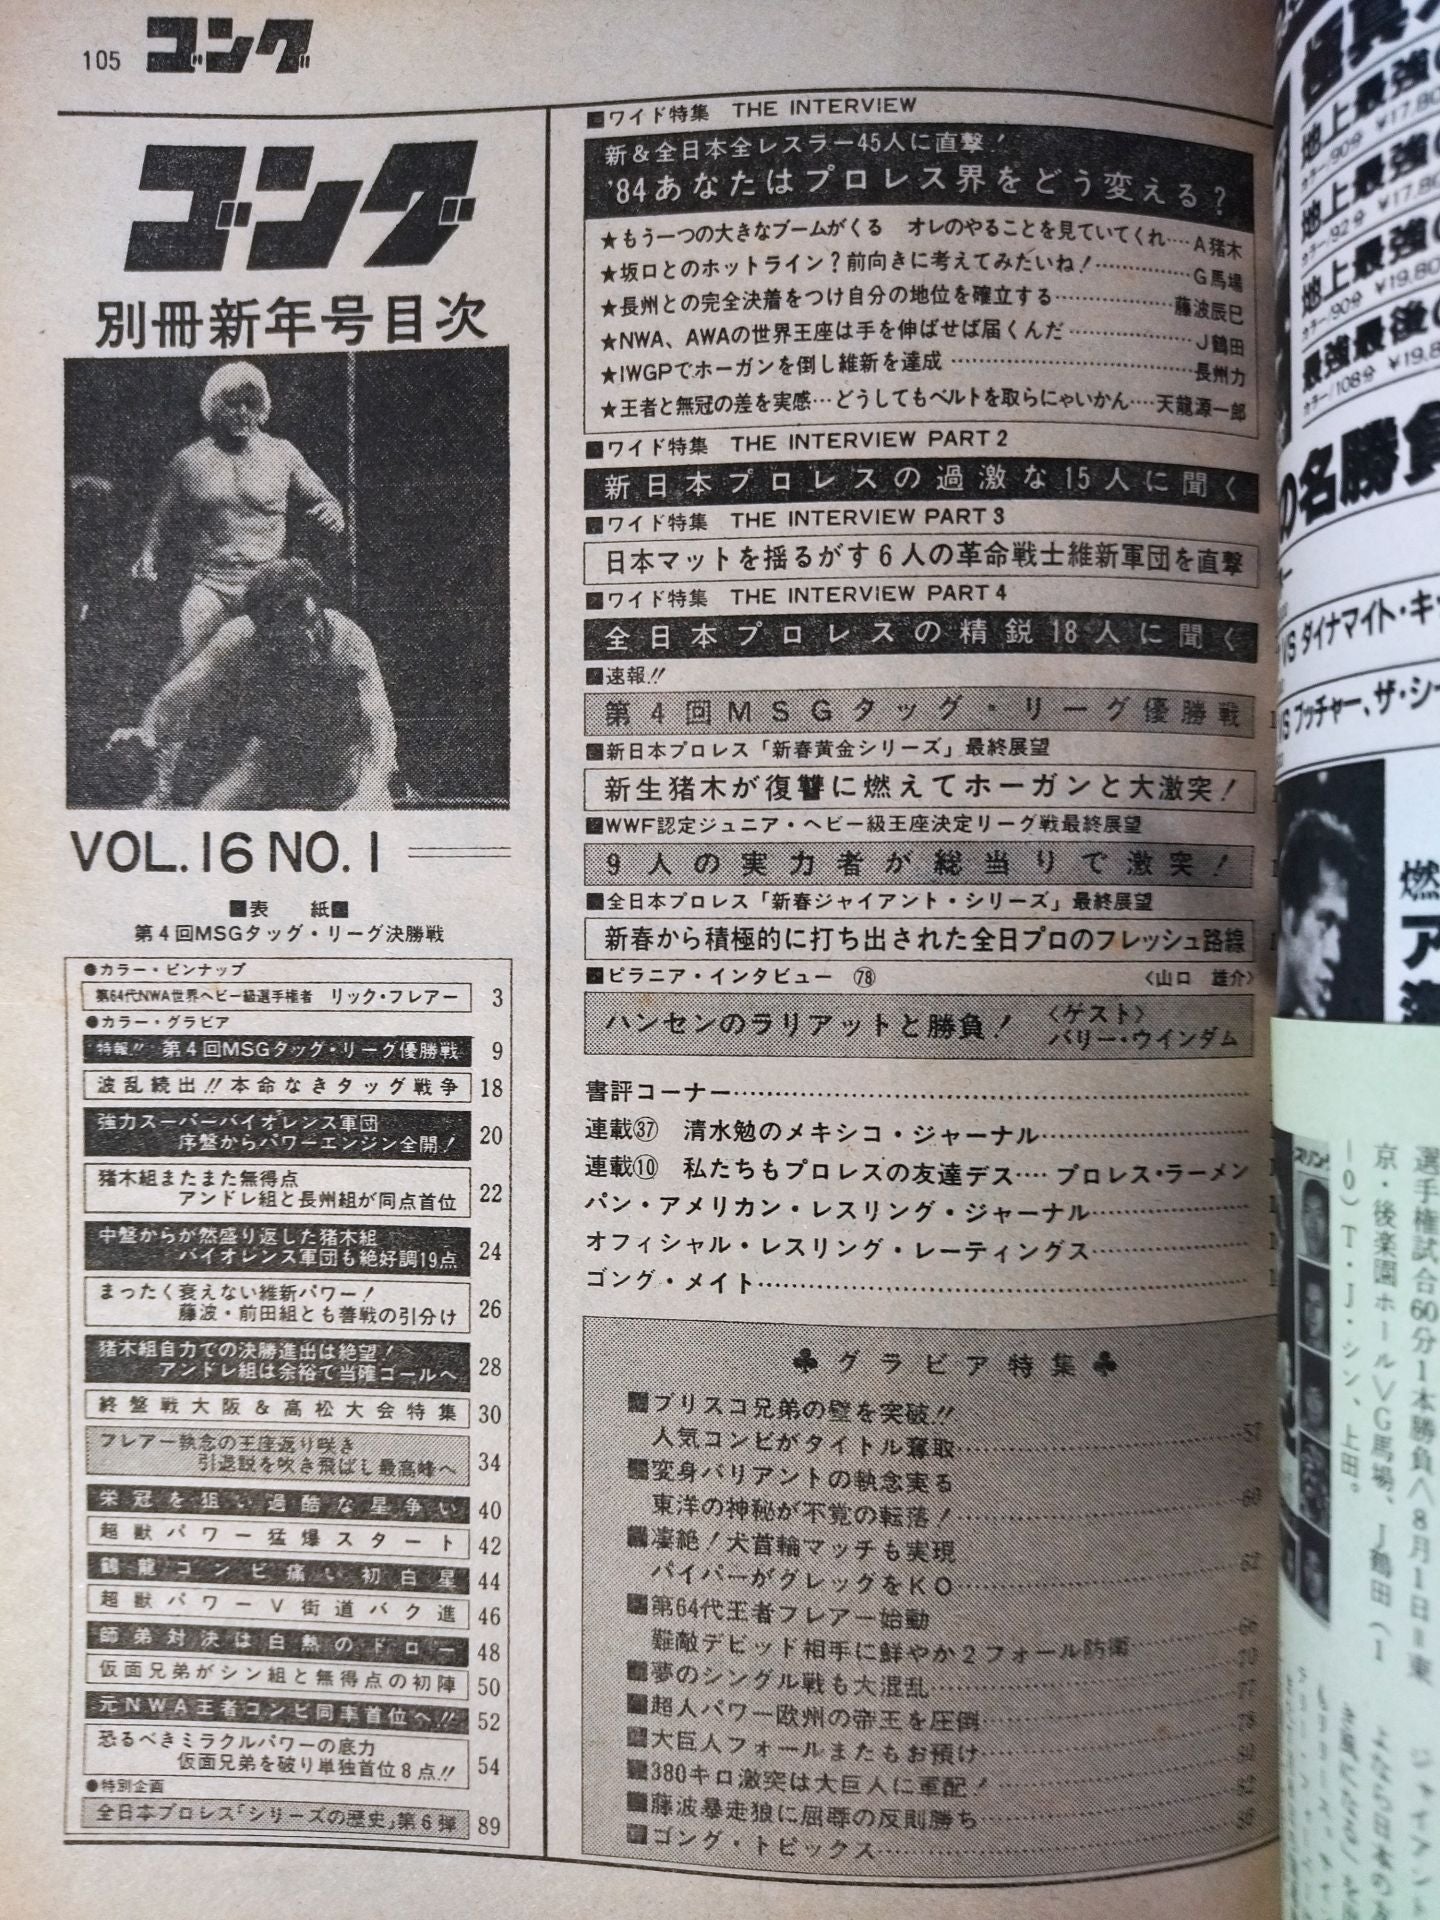 105 ゴング
ゴング
別冊新年号目次
VOL.16 NO.1
■表 紙■
第4回MSGタッグ・リーグ決勝戦
●カラー・ピンナップ
第64代NWA世界ヘビー級選手権者 リック・フレアー 3
●カラー・グラビア
特報!! 第4回MSGタッグ・リーグ優勝戦 9
波乱続出!!本命なきタッグ戦争 18
強力スーパーバイオレンス軍団
序盤からパワーエンジン全開! 20
猪木組またまた無得点
アンドレ組と長州組が同点首位 22
中盤からが然盛り返した猪木組
バイオレンス軍団も絶好調19点 24
まったく衰えない維新パワー!
藤波・前田組とも善戦の引分け 26
猪木組自力での決勝進出は絶望!
アンドレ組は余裕で当確ゴールへ 28
終盤戦大阪&高松大会特集 30
フレアー執念の王座返り咲き
引退説を吹き飛ばし最高峰へ 34
栄冠を狙い過酷な星争い 40
超獣パワー猛爆スタート 42
鶴龍コンビ痛い初白星 44
超獣パワーV街道バク進 46
師弟対決は白熱のドロー 48
仮面兄弟がシン組と無得点の初陣 50
元NWA王者コンビ同率首位へ!! 52
恐るべきミラクルパワーの底力
仮面兄弟を破り単独首位8点!! 54
●特別企画
全日本プロレス「シリーズの歴史」第6弾 89
■ワイド特集 THE INTERVIEW
新&全日本全レスラー45人に直撃!
'84あなたはプロレス界をどう変える?
★もう一つの大きなブームがくる オレのやることを見ていてくれ…A猪木
★坂口とのホットライン?前向きに考えてみたいね!……………G馬場
★長州との完全決着をつけ自分の地位を確立する………………藤波辰巳
★NWA、AWAの世界王座は手を伸ばせば届くんだ………………J鶴田
★IWGPでホーガンを倒し維新を達成………………………………長州力
★王者と無冠の差を実感…どうしてもベルトを取らにゃいかん…天龍源一郎
■ワイド特集 THE INTERVIEW PART 2
新日本プロレスの過激な15人に聞く
■ワイド特集 THE INTERVIEW PART 3
日本マットを揺るがす6人の革命戦士維新軍団を直撃
■ワイド特集 THE INTERVIEW PART 4
全日本プロレスの精鋭18人に聞く
■速報!!
第4回MSGタッグ・リーグ優勝戦
■新日本プロレス「新春黄金シリーズ」最終展望
新生猪木が復讐に燃えてホーガンと大激突!
■WWF認定ジュニア・ヘビー級王座決定リーグ戦最終展望
9人の実力者が総当りで激突!
■全日本プロレス「新春ジャイアント・シリーズ」最終展望
新春から積極的に打ち出された全日プロのフレッシュ路線
■ピラニア・インタビュー ㊆ 〈山口 雄介〉
ハンセンのラリアットと勝負! 〈ゲスト〉
バリー・ウインダム
書評コーナー……………………………………
連載㊲ 清水勉のメキシコ・ジャーナル………………
連載⑩ 私たちもプロレスの友達デス…プロレス・ラーメン
パン・アメリカン・レスリング・ジャーナル…………
オフィシャル・レスリング・レーティングス…………
ゴング・メイト……………………………………
♣グラビア特集♣
■ブリスコ兄弟の壁を突破!!
人気コンビがタイトル奪取…………57
■変身バリアントの執念実る
東洋の神秘が不覚の転落!…………60
■凄絶!犬首輪マッチも実現
パイパーがグレッグをKO…………62
■第64代王者フレアー始動
難敵デビッド相手に鮮やか2フォール防衛 66
■夢のシングル戦も大混乱…………70
■超人パワー欧州の帝王を圧倒…………77
■大巨人フォールまたもお預け…………78
■380キロ激突は大巨人に軍配!…………80
■藤波暴走狼に屈辱の反則勝ち…………82
■ゴング・トピックス…………86
極真
地上最強の
カラー/90分 ¥17,80
地上最強の
カラー/92分 ¥17,80
地上最強の
カラー/90分 ¥19,80
最強最後の
カラー/108分 ¥19,8
の名勝負
VS ダイナマイト・キッ
VS ブッチャー、ザ・シー
燃
ア
選手権試合60分1本勝負〈8月1日=東
京・後楽園ホール〉G馬場、J鶴田(1
-0)T・J・シン、上田。